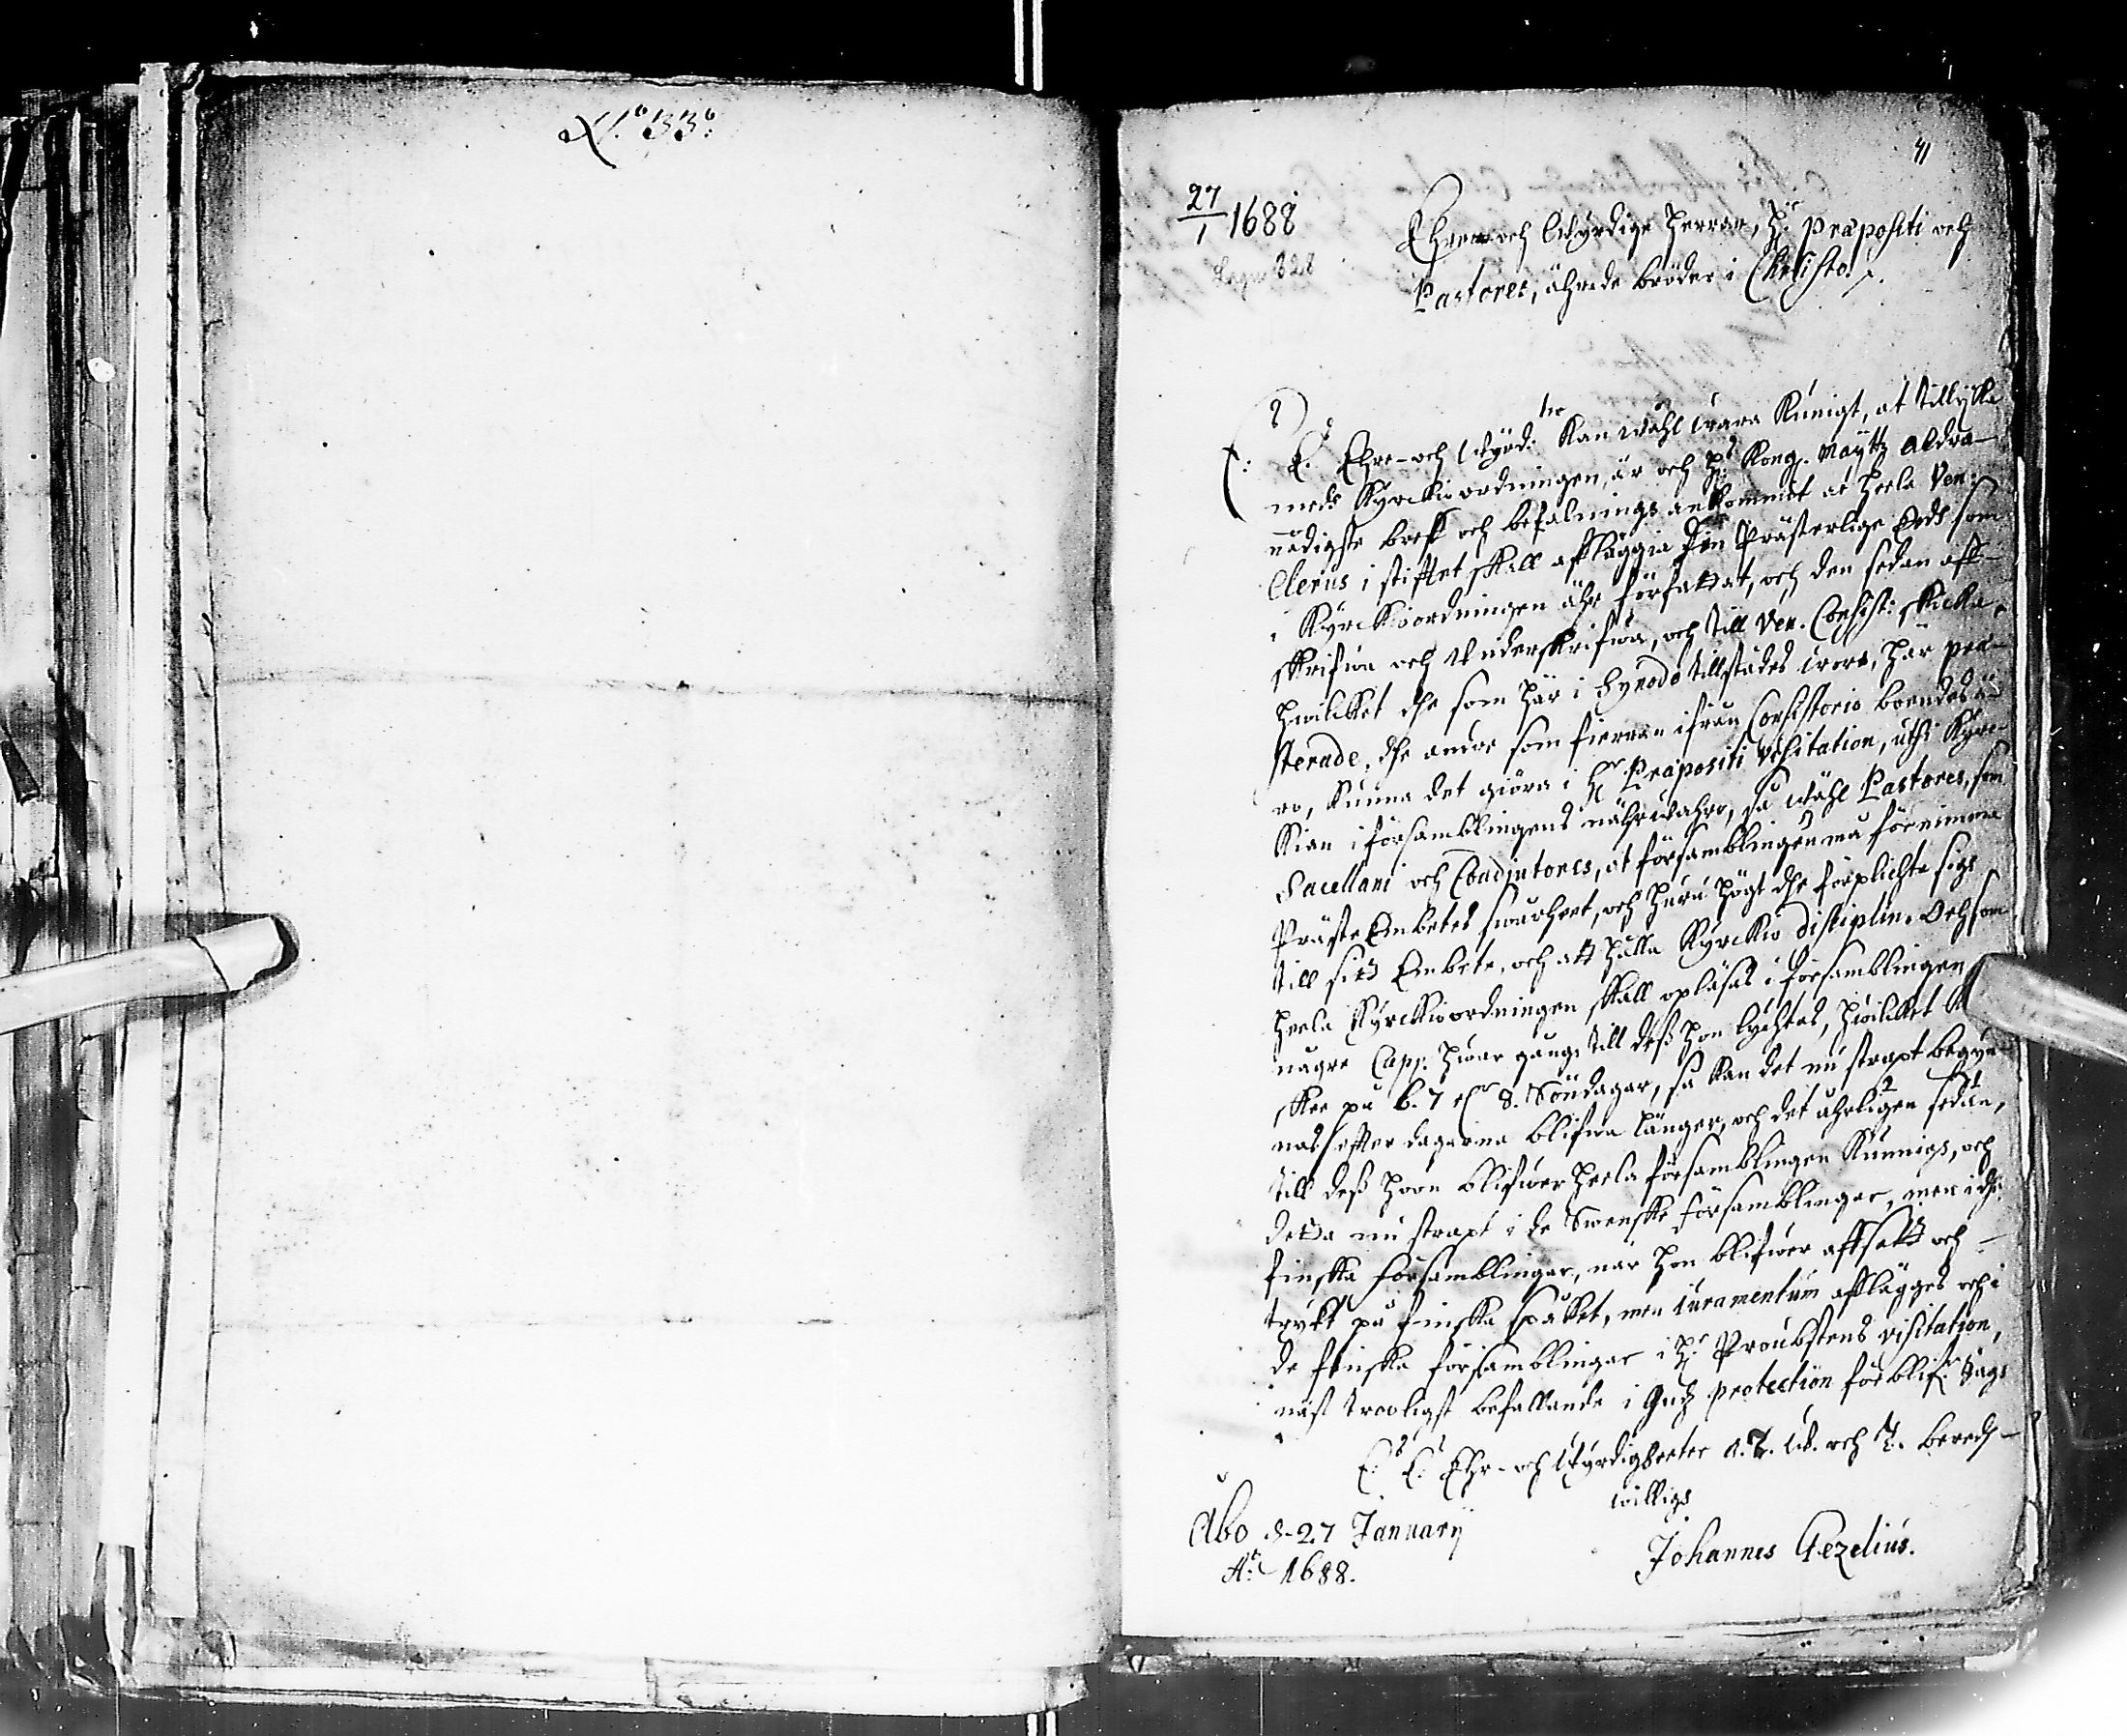 N:o 33:
41
27/1 1688
Ehre- och Wyrdige Herrar, H:r Præpositi och
Pastores, ährade bröder i Christo.
E: E. Ehre- och Wyrd:ter Kan wähl wara Kunigt, at tillijka
medh Kyrckioordningen, är och H:s Kong. Maytz aldra-
nådigste breff och befalnings ankommit at heela Ven:
Clerus i stifftet skall affläggia den Prästerlige Eedh som
i Kyrckioordningen ähr författat, och den sedan aff-
skrifwa och Underskrifwa, och till Ven. Consist: skicka,
hwilcket dhe som här i Synodo tillstädes wore, här præ-
sterade, dhe andre som fierran ifrån Consistorio boendes ä-
ro, kunna det giöra i H:r Præpositi Visitation, uthi Kyrc-
kian i församblingens nährwahro, så wähl Pastores, som
Sacellani och Coadjutores, at församblingen må förnimma
Präste Embetes swårheet, och huru högt dhe förplichte sigh
till sitt Embete, och att hålla Kyrckio disciplin. Och som
heela Kyrckioordningen skall opläsas i församblingen
någre Capp: hwar gång till dess hon lychtas, hwilcket
skee på 6. 7 el:r 8. Söndagar, så kan det nu strapt begyn-
nas effter dagarna blifwa länger, och det åhrligen sedan,
till dess hoon blifwer heela församblingen Kunnigh, och
detta nu strapt i de Swenske församblingar, men i dhe
finska församblingar, när hon blifwer affsatt och
tryckt på finska språket, men Iuramentum afflägges och i
de finska församblingar i H:r Proubstens visitation,
näst troligst befallande i Gudz protection förblif:r Jagh
E: E: Ehr- och Wyrdigheeter A. T. W. och T. beredh-
willigh
Åbo d. 27 January
A:o 1688.
Johannes Gezelius.